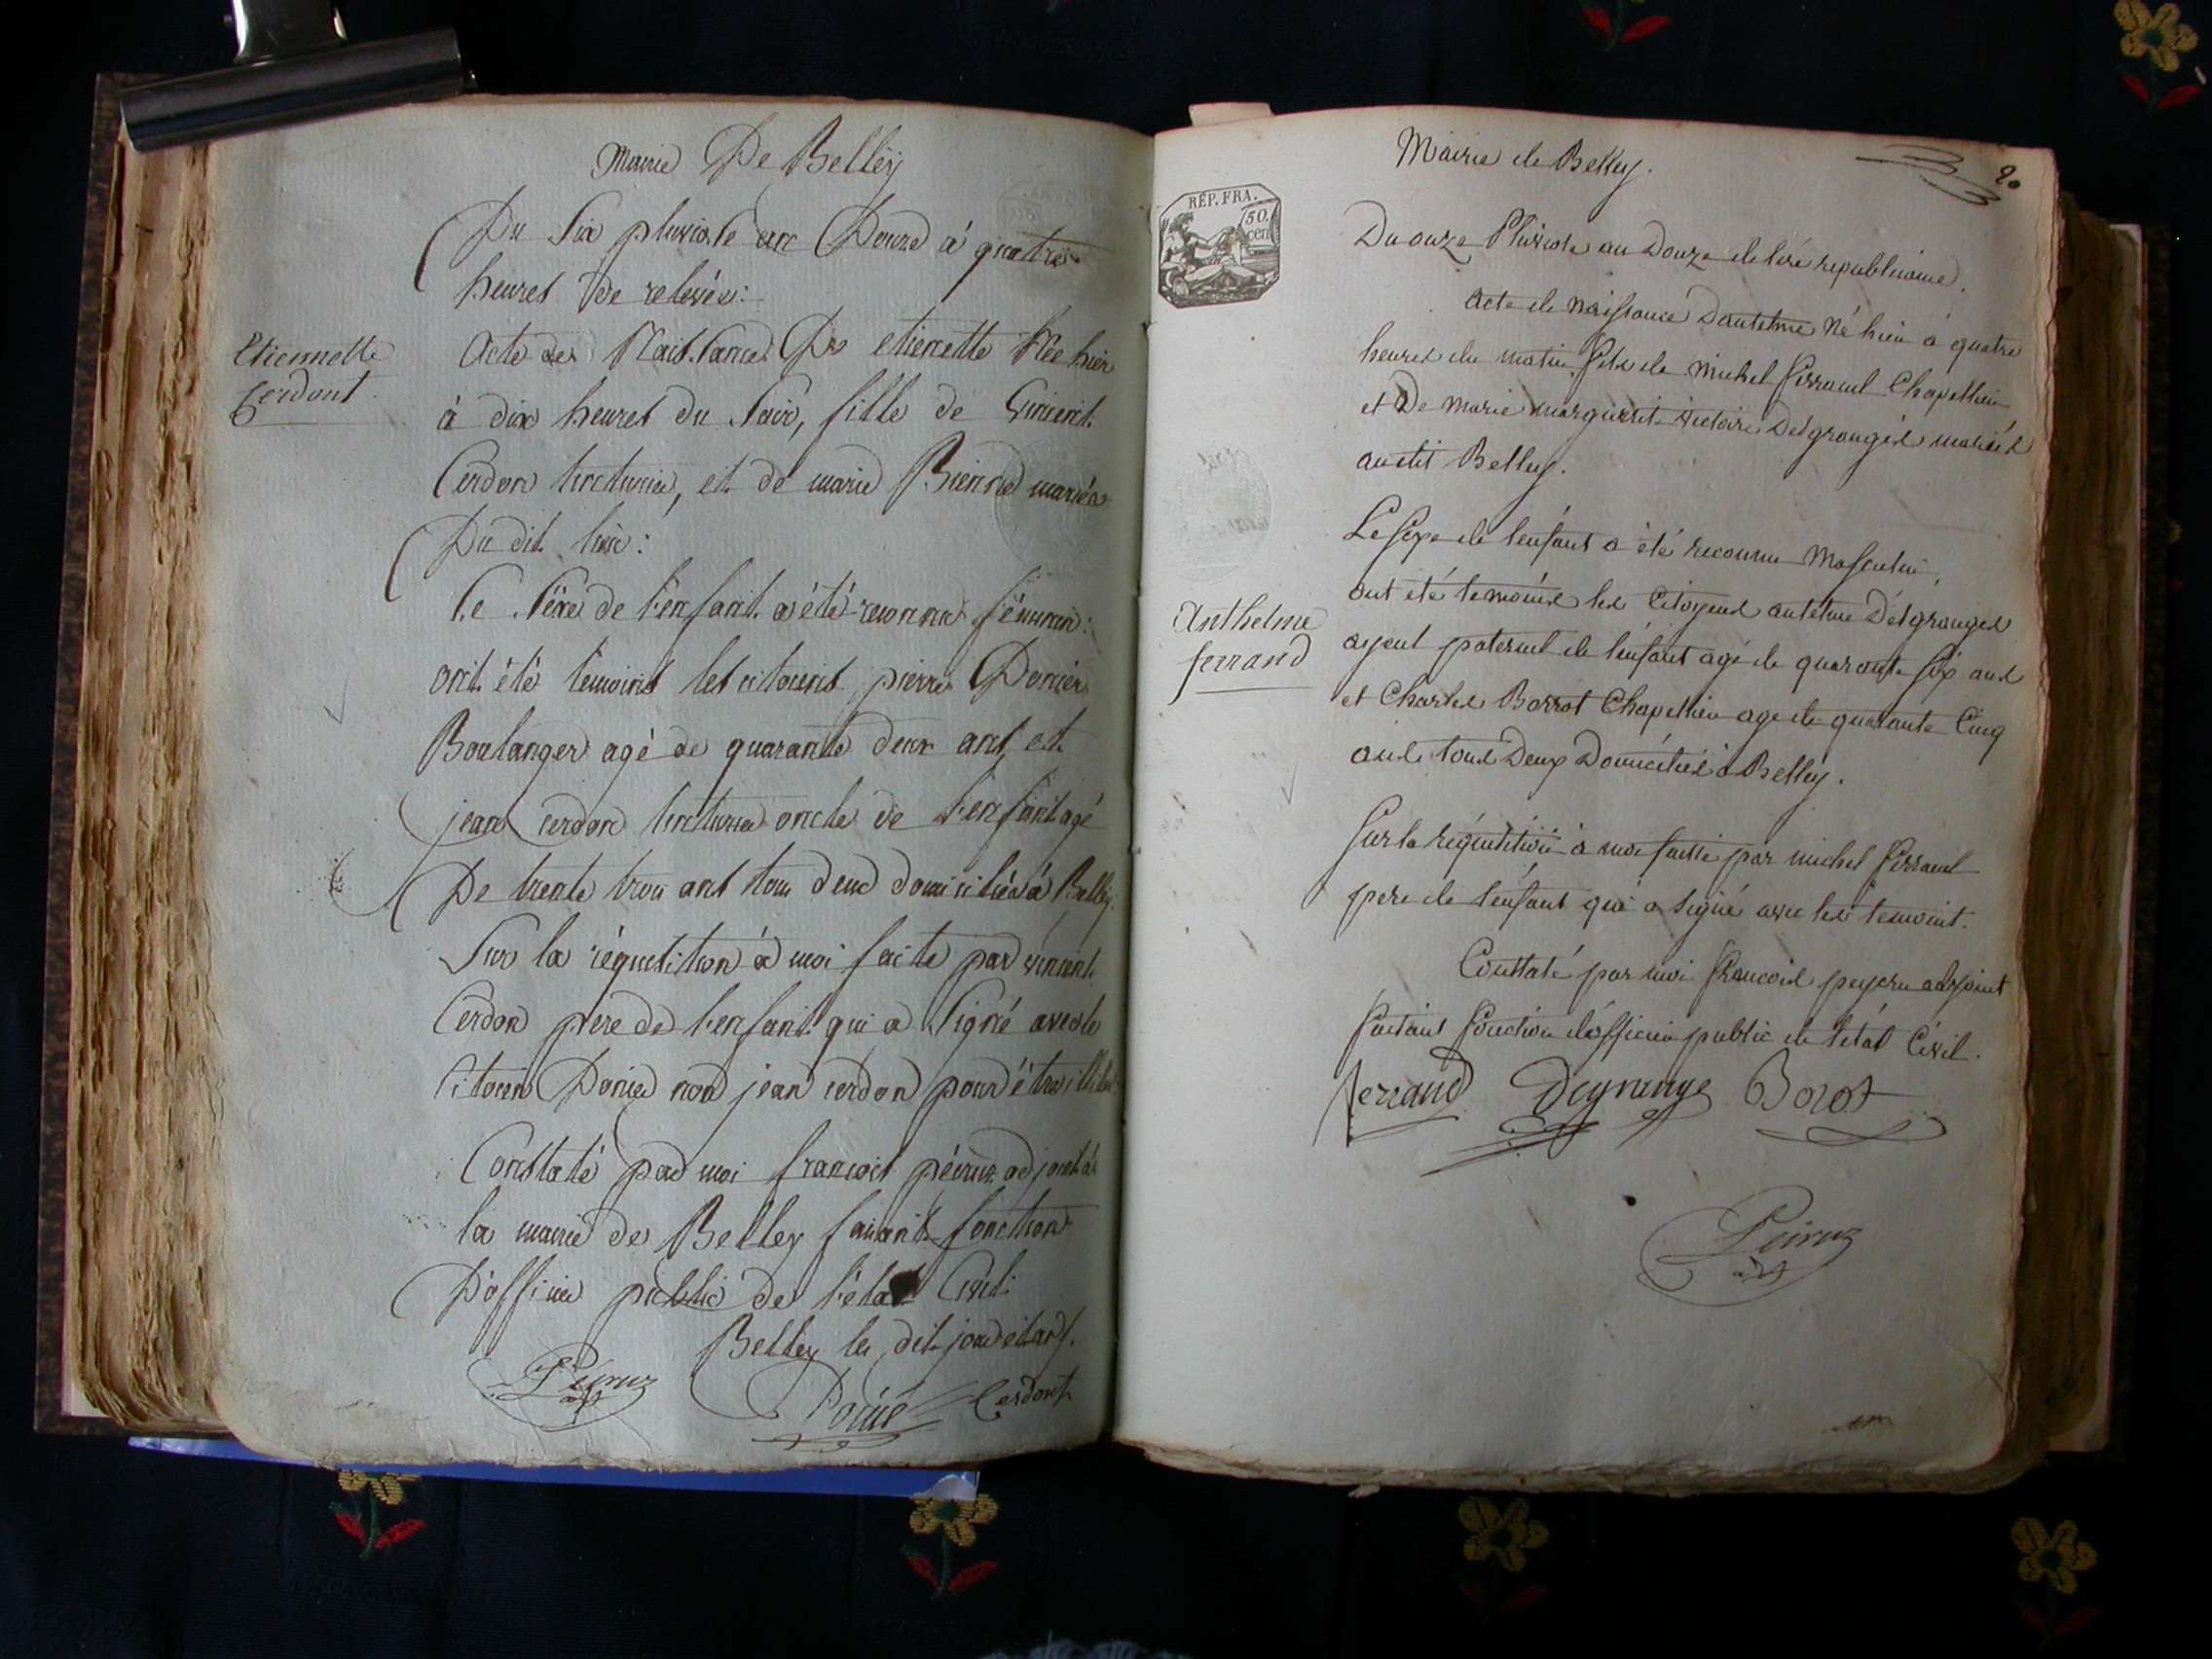 Mairie De Belley
Du Six pluviose an Douze à quatre
heures de relevée:
Etiennette
Cerdont
Acte de Naissance De etienette Née hier
à dix heures du Soir, fille de Vincent
Cerdon tinturier, et de marie mariés
Du dit lieu:
Le Sexe de l'enfant a été reconnu féminin:
ont été témoins les citoiens pierre Donier
Boulanger agé de quarante deux ans, et
jean cerdon tinturier oncle de l'enfant agé
De trente trois ans tous deux domiciliés à Belley:
Sur la réquisition à moi faite par vincent
Cerdon pere de l'enfant qui a Signé avec le
Citoien Donier non jean cerdon pour être
Constaté par moi françois péiruz adjoint à
la mairie de Belley faisant fonction
D'officier public de l'état Civil:
Belley les dit jour et an.
Péiruz Cerdont
Mairie de Belley.
20
RÉP. FRA.
50.
cen.
Du onze Pluviose an Douze de l'ère republicaine.
Acte de Naissance Dantelme Né hier à quatre
heures du matin, fils de michel ferrand Chapellier
et De marie marguerite victoire Desgranges mariés
audit Belley.
Le sexe de l'enfant a été reconnu Masculin,
Anthelme
ferrand
ont été temoins les Citoyens antelme Desgranges
ayeul paternel de l'enfant agé de quarante six ans
et Charles Borrot Chapellier agé de quarante Cinq
ans tous Deux Domiciliés à Belley.
Sur la réquisition à moi faitte par michel ferrand
pere de l'enfant qui a signé avec les temoins.
Constaté par moi françois peyru adjoint
faisant fonction d'officier public de l'état Civil.
ferrand Degrange Borot
Peiruz